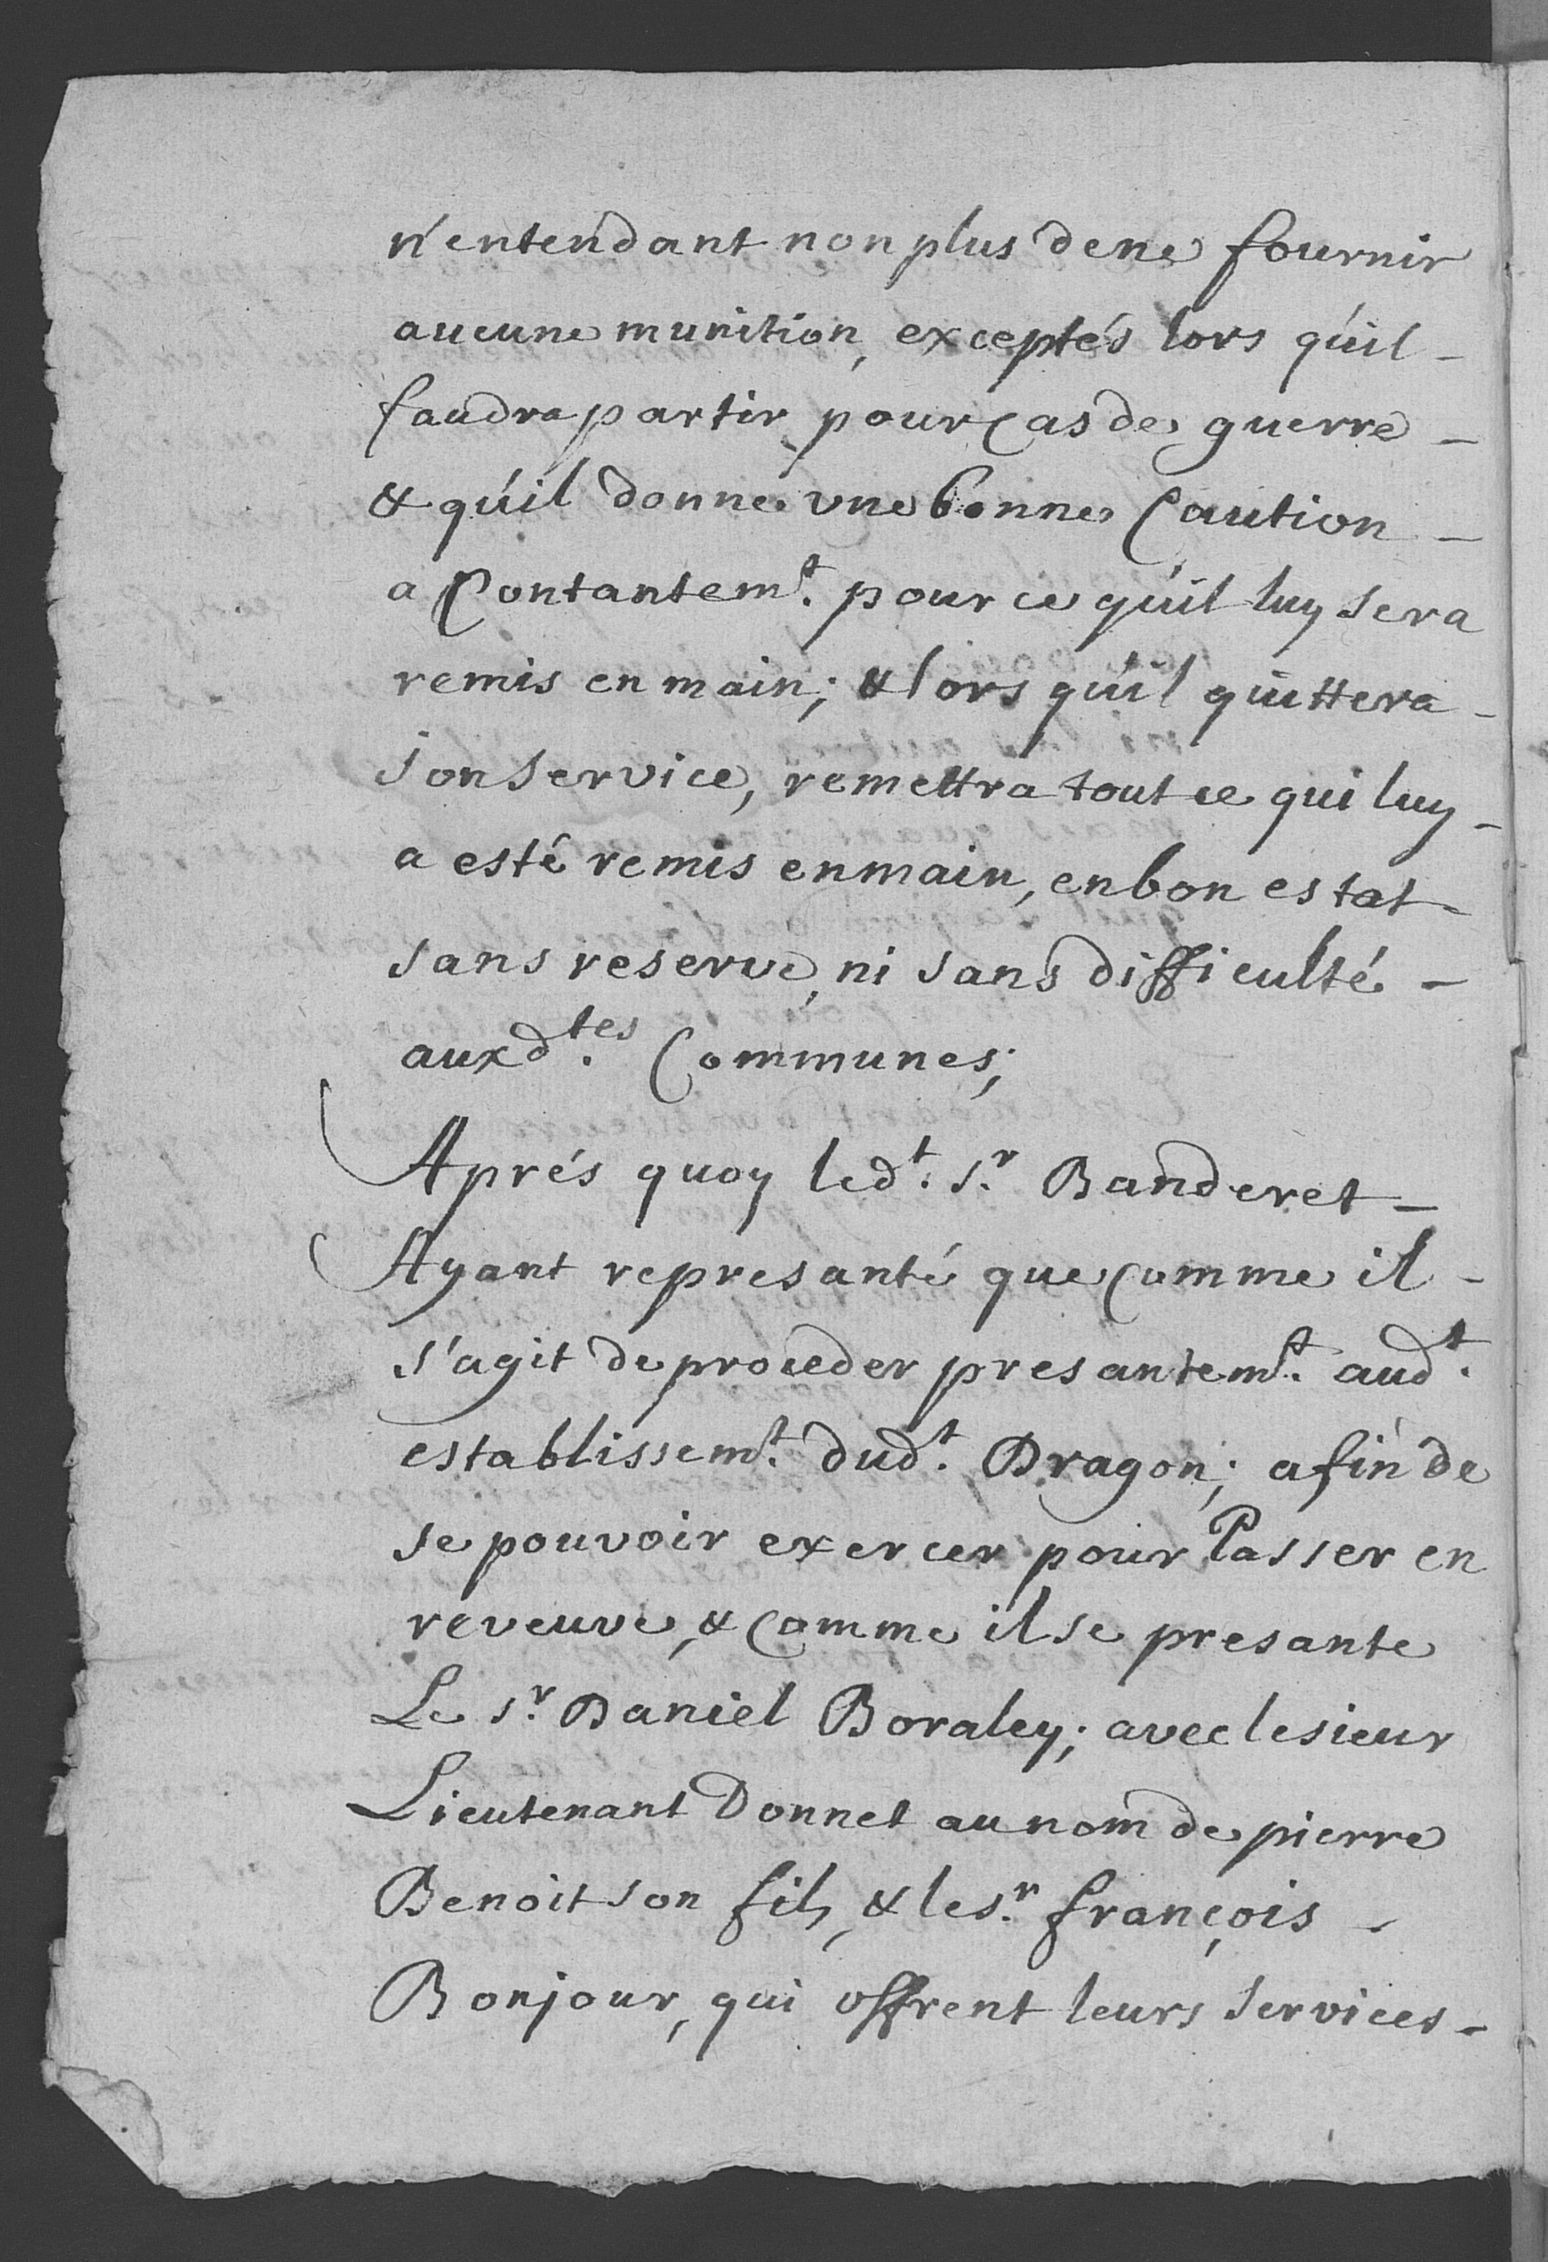 n'entendant non plus de ne fournir
aucune munition, exceptés lors qu'il -
faudra partir pour cas de guerre -
& qu'il donne une bonne Caution -
a Contantem.t pour ce qu'il luy sera
remis en main; & lors qu'il quittera -
son service, remettra tout ce qui luy -
a esté remis en main, en bon estat -
sans reserve, ni sans difficulté -
auxd.tes Communes;
Aprés quoy led.t s.r Banderet -
Ayant represanté que comme il -
s'agit de proceder presantem.t aud.t
establissem.t dud.t Dragon; afin de
se pouvoir exercer pour Passer en
reveuve, & comme il se presante
Le s.r Daniel Boraley; avec le sieur
Lieutenant Donnet au nom de pierre
Benoit son fils, & le s.r françois -
Bonjour, qui offrent leurs services -